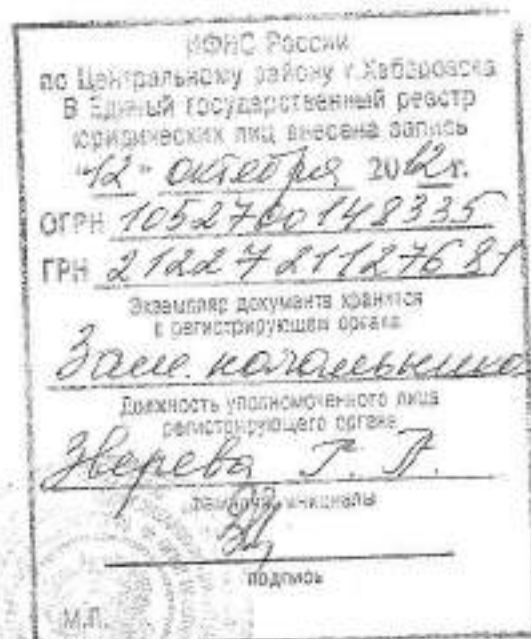 ИФНС России
по Центральному району г.Хабаровска
В Единый государственный реестр
юридических лиц внесена запись
"12" октября 2012г.
ОГРН 1052700148335
ГРН 2122721127681
Экземпляр документа хранится
в регистрирующем органе
Зам. начальника
Должность уполномоченного лица
регистрирующего органа
Зверева Г. П.
фамилия, инициалы
подпись
М.П.